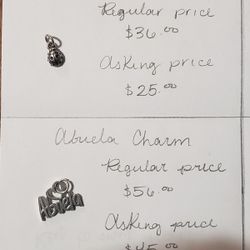 Regular price
$36.00
Asking price
$25.00
Abuela Charm
Regular price
$56.00
Abuela
Asking price
$45.00